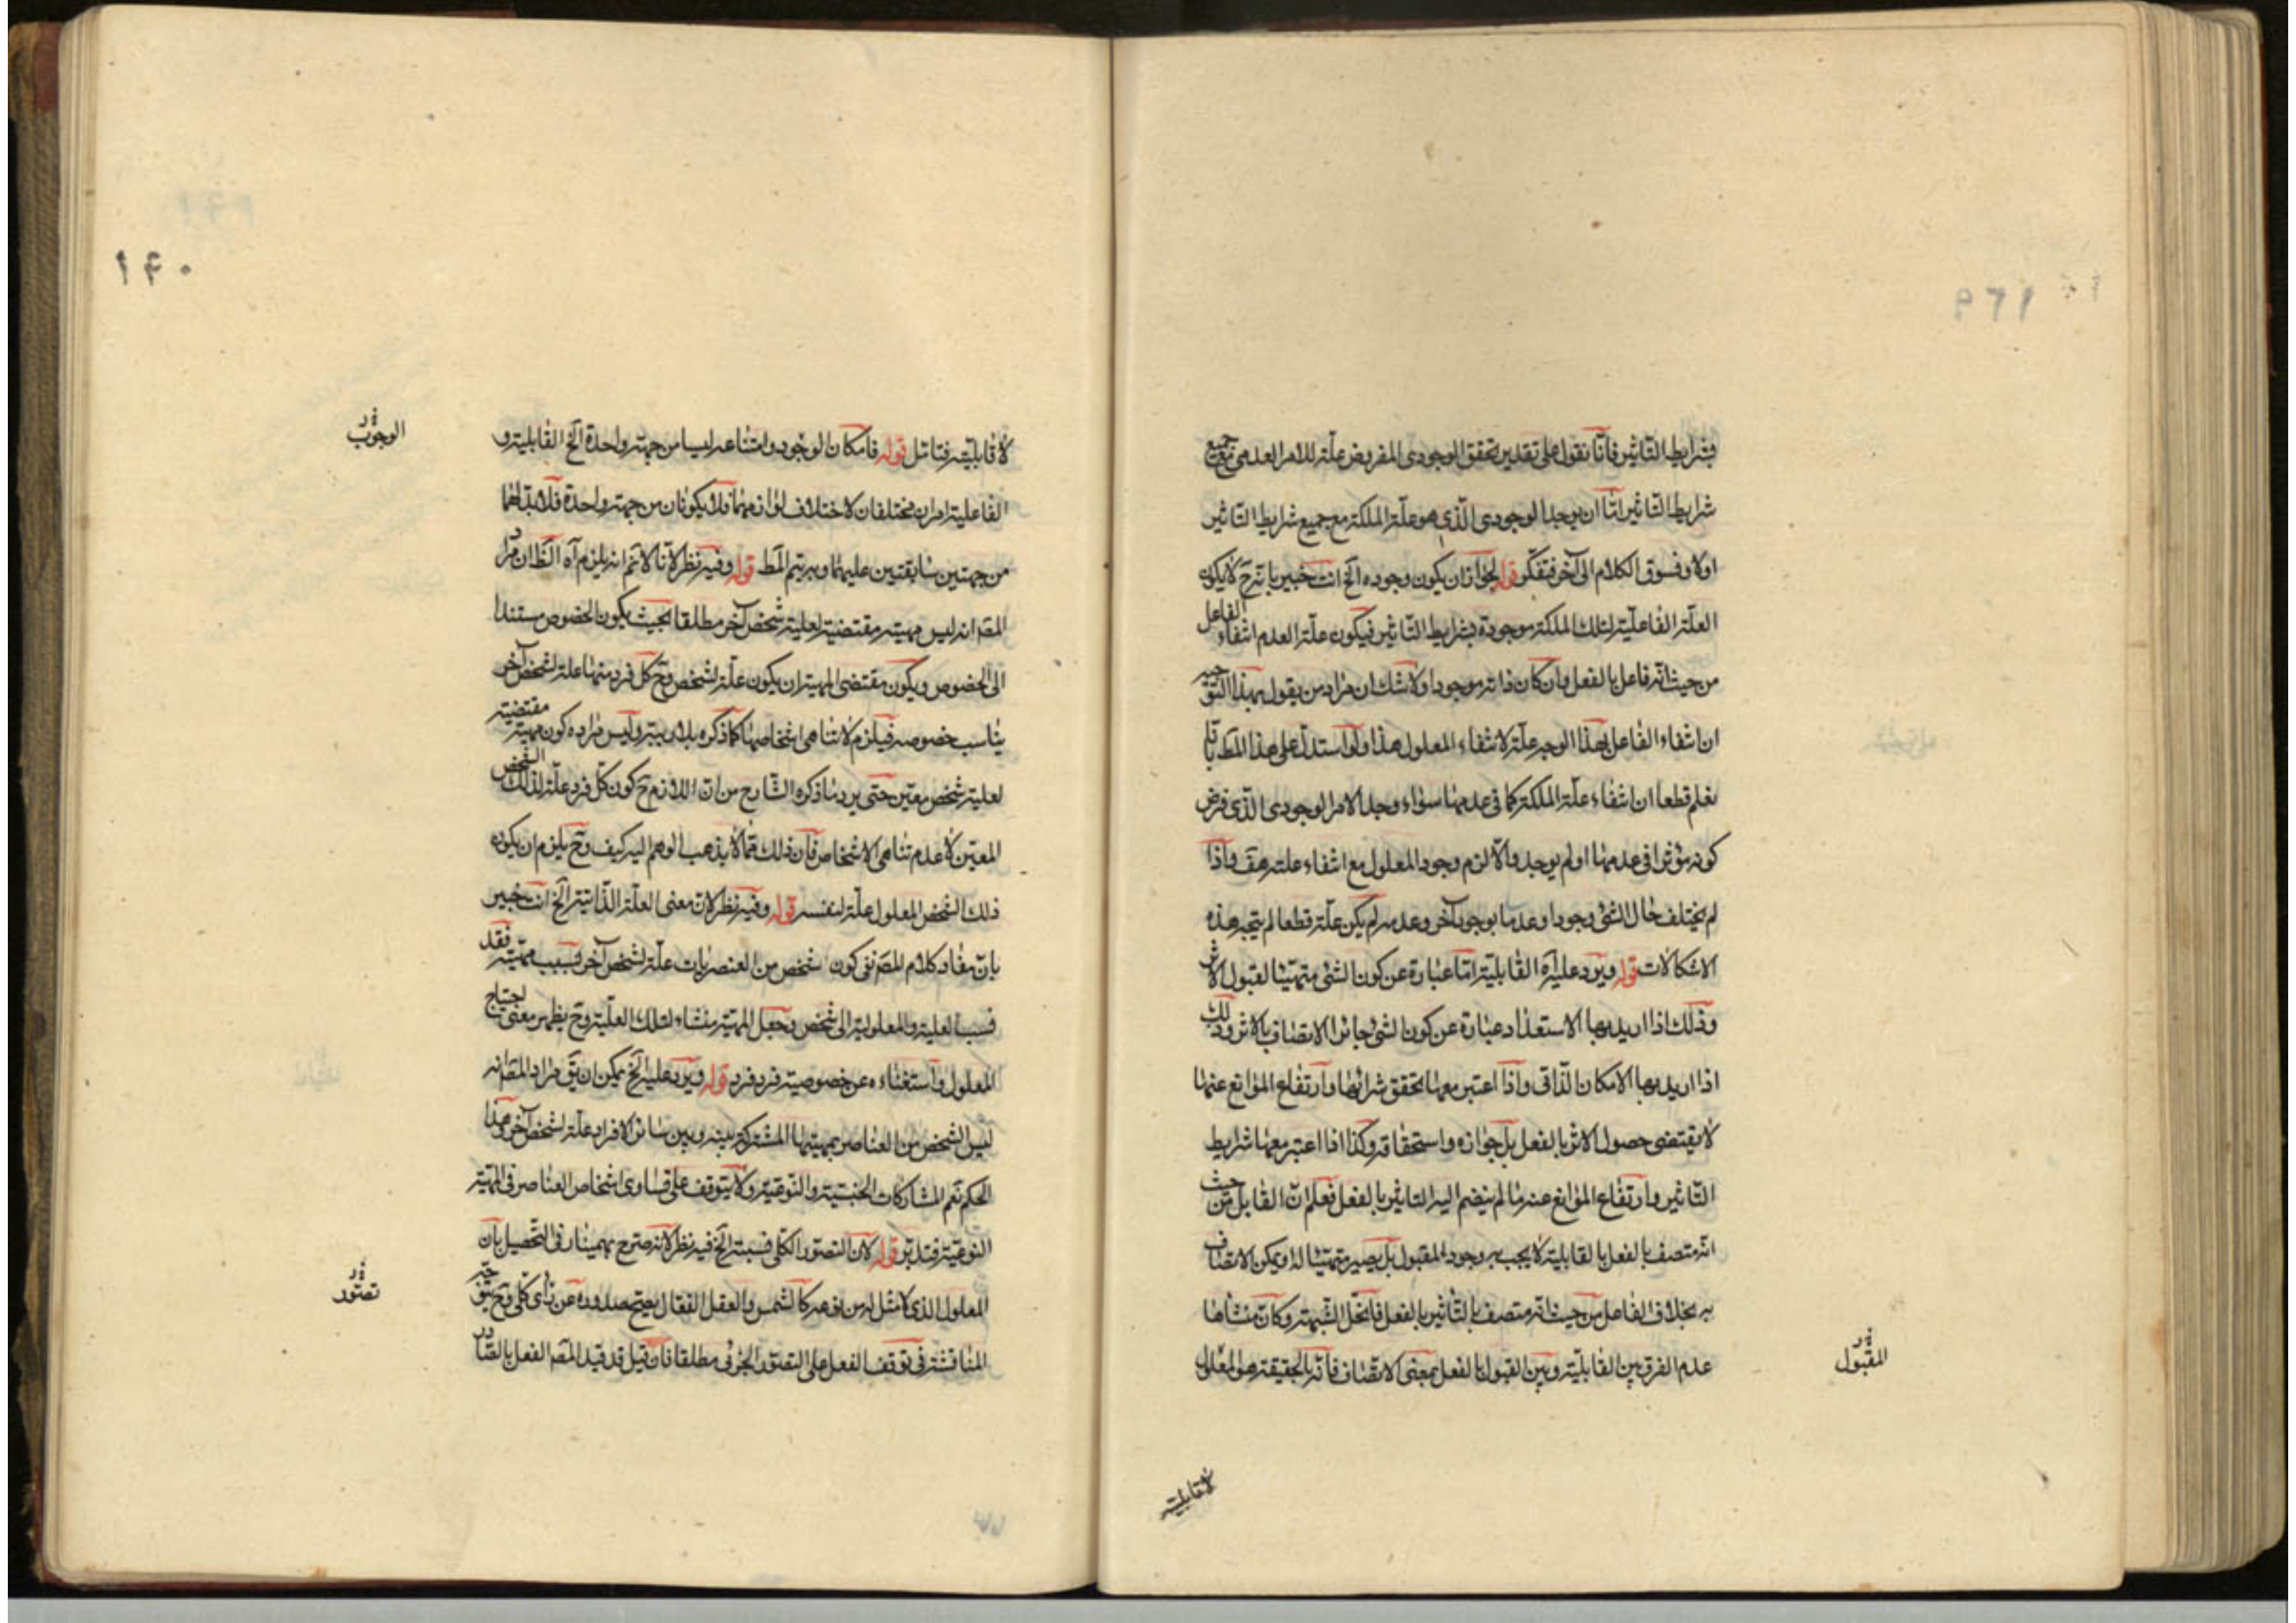 بشرايط التاثير فانا نقول على تقدير تحقق الوجودى المفروض علة للامر العدمى مع جميع
شرايط التاثير اما ان يوجد الوجودى الذى هو علة الملكة مع جميع شرايط التاثير
اولا وفسوق الكلام الى آخره فتفكر قوله لجواز ان يكون وجوده الخ انت خبير بانه ح لا يكون
العلة الفاعلية لتلك الملكة موجودة بشرايط التاثير فيكون علة العدم انتفاء الفاعل
من حيث انه فاعل بالفعل وان كان ذاته موجودا ولا شك ان مراد من يقول بهذا
ان انتفاء الفاعل بهذا الوجه علة لانتفاء المعلول هذا ولو استدل على هذا المط بانا
نعلم قطعا ان انتفاء علة الملكة كما فى عدمها سواء وجد الامر الوجودى الذى فرض
كونه مؤثرا فى عدمها او لم يوجد والا لزم وجود المعلول مع انتفاء علته هف واذا
لم يختلف حال الشئ وجودا وعدما بوجود آخر وعدمه لم يكن علة قطعا لم يتجه هذه
الاشكالات قوله ويرد عليه آه القابلية اما عبارة عن كون الشئ متهيئا لقبول الاثر
وذلك اذا اريد بها الاستعداد عبارة عن كون الشئ جائز الاتصاف بالاثر وذلك
اذا اريد بها الامكان الذاتى واذا اعتبر معها تحقق شرائطها وارتفاع الموانع عنها
لا يقتضى حصول الاثر بالفعل بل جوازه واستحقاقه وكذا اذا اعتبر معها شرايط
التاثير وارتفاع الموانع عنه ما لم ينضم اليه التاثير بالفعل فعلم ان القابل من حيث
انه متصف بالفعل بالقابلية لا يجب به وجود المقبول بل يصير متهيئا له ويمكن الاتصاف
به بخلاف الفاعل من حيث انه متصف بالتاثير بالفعل فانحل الشبهة وكان منشأها
عدم الفرق بين القابلية وبين القبول بالفعل بمعنى الاتصاف فانه بالحقيقة هو المعلول
المقبول
لا قابليته
١٤٠
لا قابليته فتامل قوله فامكان الوجود وامتناعه ليسا من جهة واحدة الخ القابلية و
الوجوب
الفاعلية امران مختلفان لاختلاف لوازمهما فلا يكونان من جهة واحدة فلا بد لهما
من جهتين سابقتين عليهما وبه يتم المط قوله وفيه نظر لانا لا نم انه يلزم آه الظ ان مراد
المص انه ليس مهيته مقتضية لعلية شخص آخر مطلقا بحيث يكون الخصوص مستندا
الى الخصوص ويكون مقتضى المهية ان يكون علة لشخص وح كل فرد منها علة لشخص آخر
يناسب خصوصه فيلزم لا تناهى اشخاصها كما ذكره بلا ريبة وليس مراده كون مهيته مقتضية
لعلية شخص معين حتى يرد ما ذكره الشارح من ان اللازم ح كون كل فرد علة لذلك الشخص
المعين لا عدم تناهى الاشخاص فان ذلك مما لا يذهب الوهم اليه كيف وح يلزم ان يكون
ذلك الشخص المعلول علة لنفسه قوله وفيه نظر لان معنى العلة الذاتية الخ انت خبير
بان مفاد كلام المص نفى كون شخص من العنصريات علة لشخص آخر بسبب مهيته فقد
نسب العلية والمعلولية الى شخص وجعل المهية منشاء لتلك العلية وح يظهر معنى احتياج
المعلول واستغناءه عن خصوصية فرد فرد قوله ويرد عليه الخ يمكن ان يق مراد المص انه
ليس الشخص من العناصر بمهيتها المشتركة بينه وبين سائر الافراد علة لشخص آخر وهذا
الحكم نعم المشاركات الجنسية والنوعية ولا يتوقف على تساوى اشخاص العناصر فى المهية
النوعية فتدبر قوله لان التصور الكلى نسبته الخ فيه نظر لانه صرح بهمنيار فى التحصيل بان
المعلول الذى لا مثل له من نوعه كالشمس والعقل الفعال يصح صدوره عن راى كلى وح
تصور
المناقشة فى توقف الفعل على التصور الجزئى مطلقا فان قيل قد قيد المص الفعل بالصادر